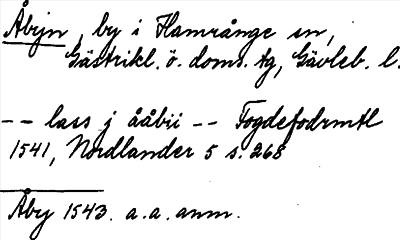 Åbyn, by i Hamrånge sn,
Gästrikl. ö. doms. tg, Gävleb. l.
-- lass j ååbii -- Fogdefodrmtl
1541, Nordlander 5 s. 268
Åby 1543. a.a. anm.